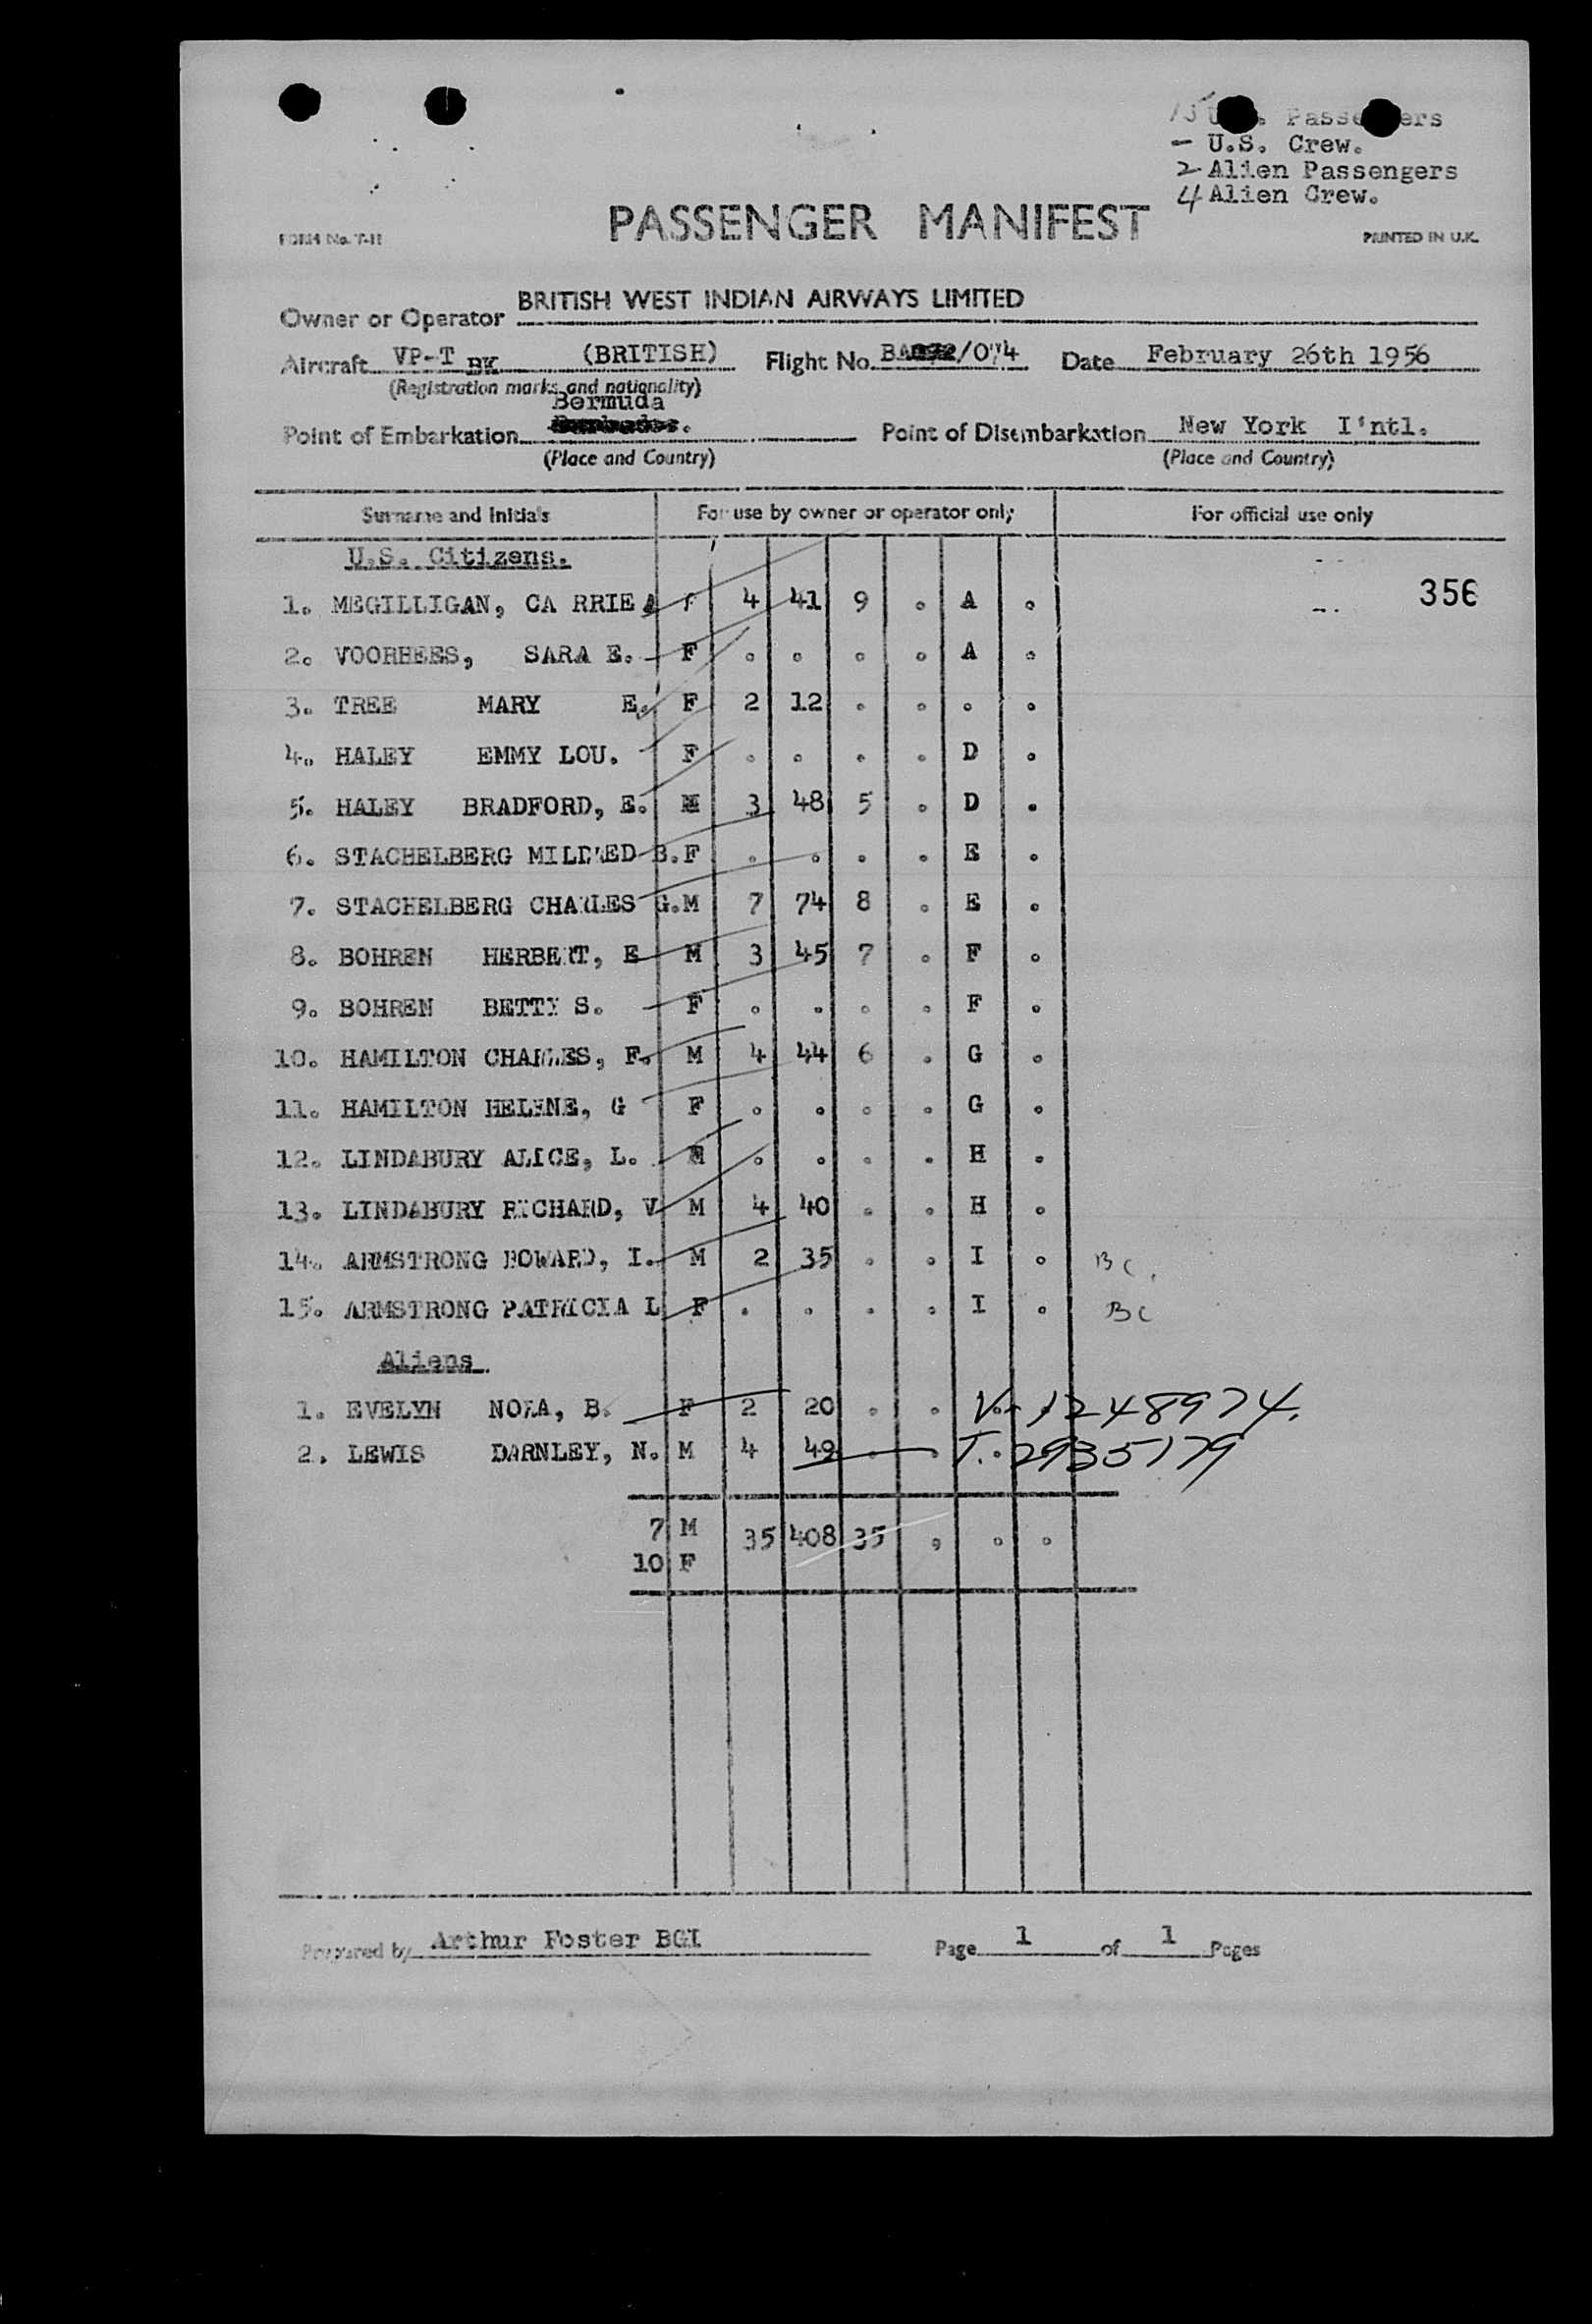 15 U.S. Passengers
- U.S. Crew.
2 Alien Passengers
4 Alien Crew.
PASSENGER MANIFEST
FORM No. T-11
PRINTED IN U.K.
Owner or Operator BRITISH WEST INDIAN AIRWAYS LIMITED
Aircraft VP-T BK (BRITISH) Flight No. BA /074 Date February 26th 1956
(Registration marks and nationality)
Bermuda
Point of Embarkation Point of Disembarkation New York I'ntl.
(Place and Country) (Place and Country)
Surname and Initials For use by owner or operator only For official use only
U.S. Citizens.
356
1. MEGILLIGAN, CA RRIE A F 4 41 9 . A .
2. VOORHEES, SARA E. F . . . . A .
3. TREE MARY E. F 2 12 . . . .
4. HALEY EMMY LOU. F . . . . D .
5. HALEY BRADFORD, E. M 3 48 5 . D .
6. STACHELBERG MILDRED B. F . . . . E .
7. STACHELBERG CHARLES G. M 7 74 8 . E .
8. BOHREN HERBERT, E M 3 45 7 . F .
9. BOHREN BETTY S. F . . . . F .
10. HAMILTON CHARLES, F. M 4 44 6 . G .
11. HAMILTON HELENE, G F . . . . G .
12. LINDABURY ALICE, L. . . . . H .
13. LINDABURY RICHARD, V M 4 40 . . H .
14. ARMSTRONG HOWARD, I. M 2 35 . . I . BC.
15. ARMSTRONG PATRICIA L F . . . . I . BC
Aliens.
1. EVELYN NORA, B. F 2 20 . . V. 1248974.
2. LEWIS DARNLEY, N. M 4 49 . . I. 2935179
7 M 35 408 35 , . .
10 F
Prepared by Arthur Foster BGI Page 1 of 1 Pages